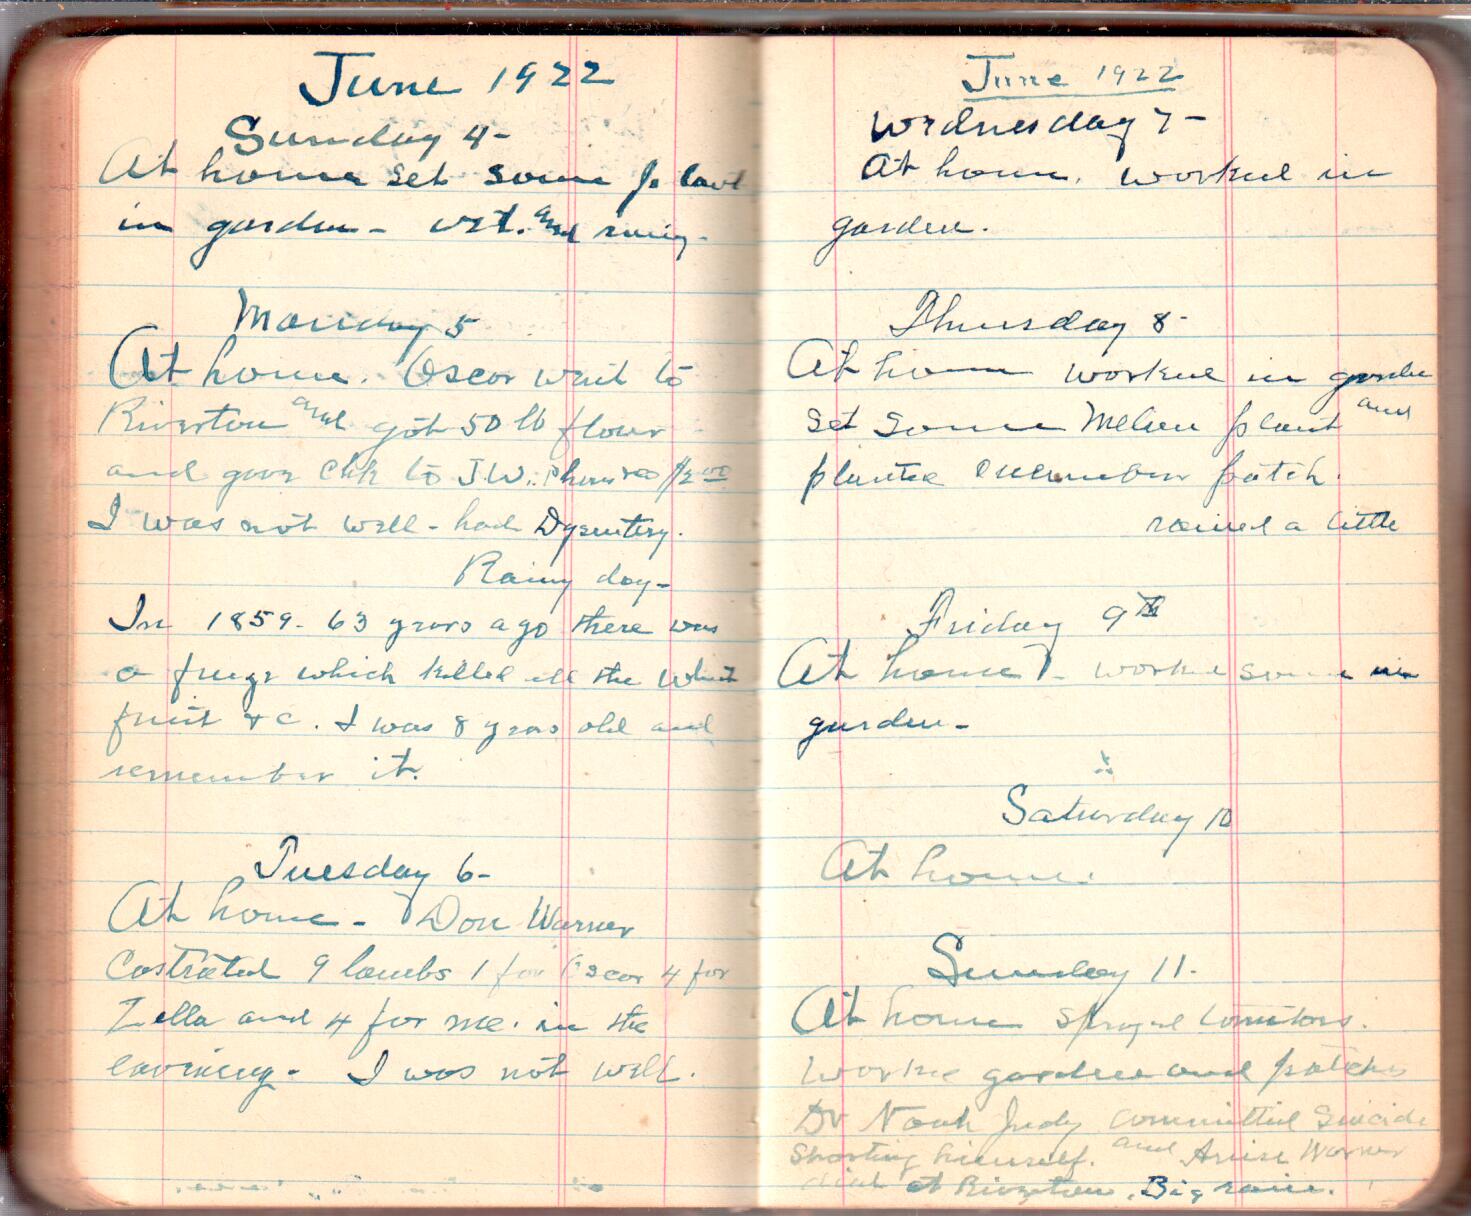 June 1922
Sunday 4-
At home set some plant
in garden - wet. and rainy-
Monday 5
At home. Oscar went to
Riverton and got 50 lb flour
and gave Chk to J.W. $2.00
I was not well - had Dysentery.
Rainy day-
In 1859 - 63 years ago there was
a freeze which killed all the wheat
fruit &c. I was 8 years old and
remember it.
Tuesday 6-
At home - Don Warner
Castrated 9 lambs 1 for Oscar 4 for
Zella and 4 for me. in the
evening - I was not well.
June 1922
Wednesday 7-
At home. worked in
garden.
Thursday 8-
At home worked in garden
set some Melon plant and
planted cucumber patch.
rained a little
Friday 9th
At home - worked some in
garden-
Saturday 10
At home.
Sunday 11.
At home sprayed tomatoes.
worked garden and patches
Dr Noah Judy committed Suicide
shooting himself. and Warner
died at Riverton. Big rain.